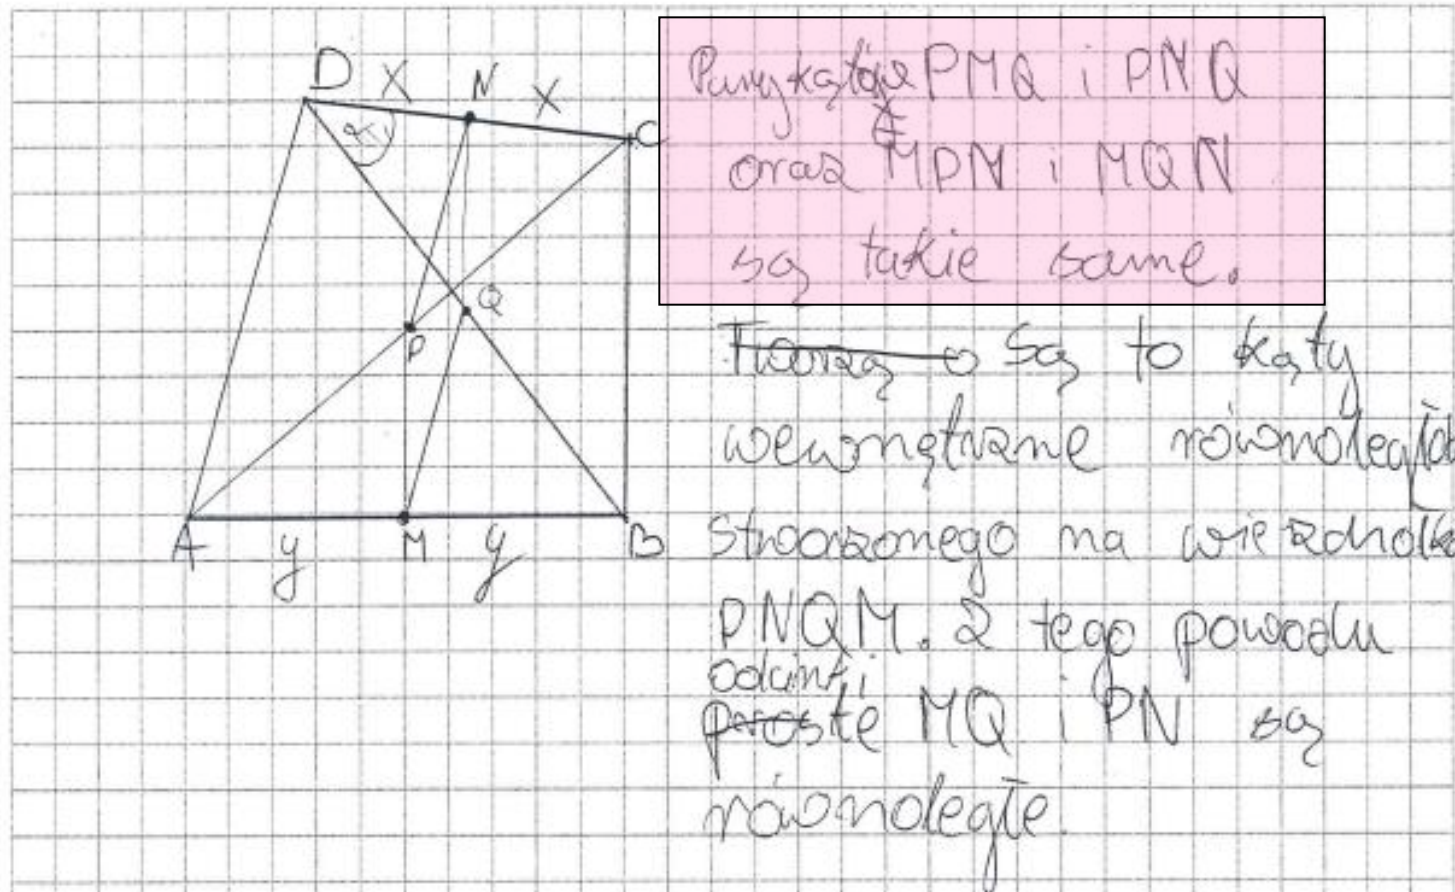 D X N X C
α₁
Q
P
A y M y B
Pary kątów PMQ i PNQ
oraz MPN i MQN
są takie same.
Tworzą o Są to kąty
wewnętrzne równoległob
stworzonego na wierzchołka
PNQM. Z tego powodu
odcinki
proste MQ i PN są
równoległe.